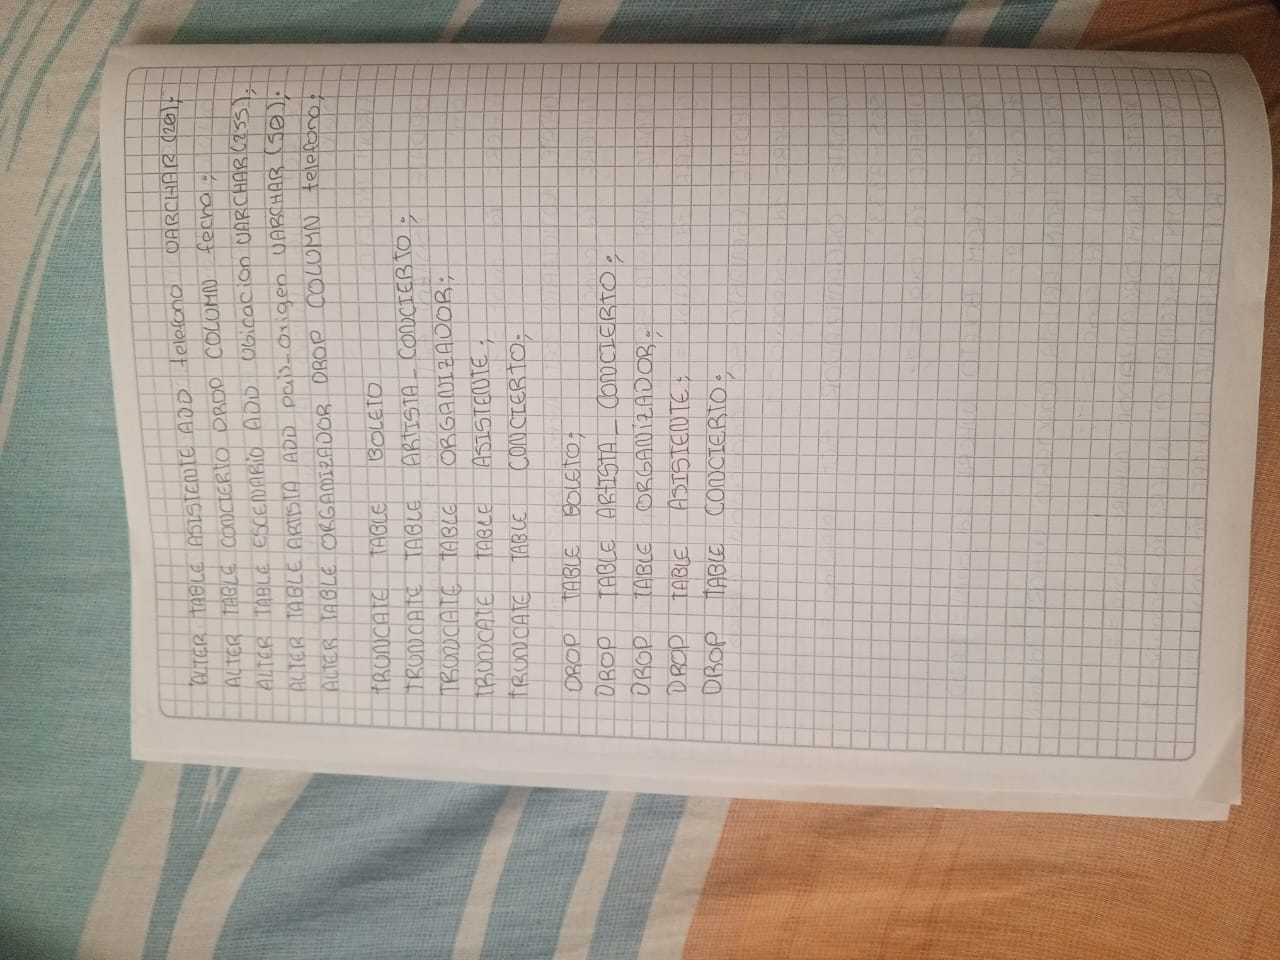 ALTER TABLE ASISTENTE ADD telefono VARCHAR (20);
ALTER TABLE CONCIERTO DROP COLUMN fecha;
ALTER TABLE ESCENARIO ADD Ubicacion VARCHAR(255);
ALTER TABLE ARTISTA ADD pais_origen VARCHAR (50);
ALTER TABLE ORGANIZADOR DROP COLUMN telefono;
TRUNCATE TABLE BOLETO
TRUNCATE TABLE ARTISTA_CONCIERTO;
TRUNCATE TABLE ORGANIZADOR;
TRUNCATE TABLE ASISTENTE;
TRUNCATE TABLE CONCIERTO;
DROP TABLE BOLETO;
DROP TABLE ARTISTA_CONCIERTO;
DROP TABLE ORGANIZADOR;
DROP TABLE ASISTENTE;
DROP TABLE CONCIERTO;